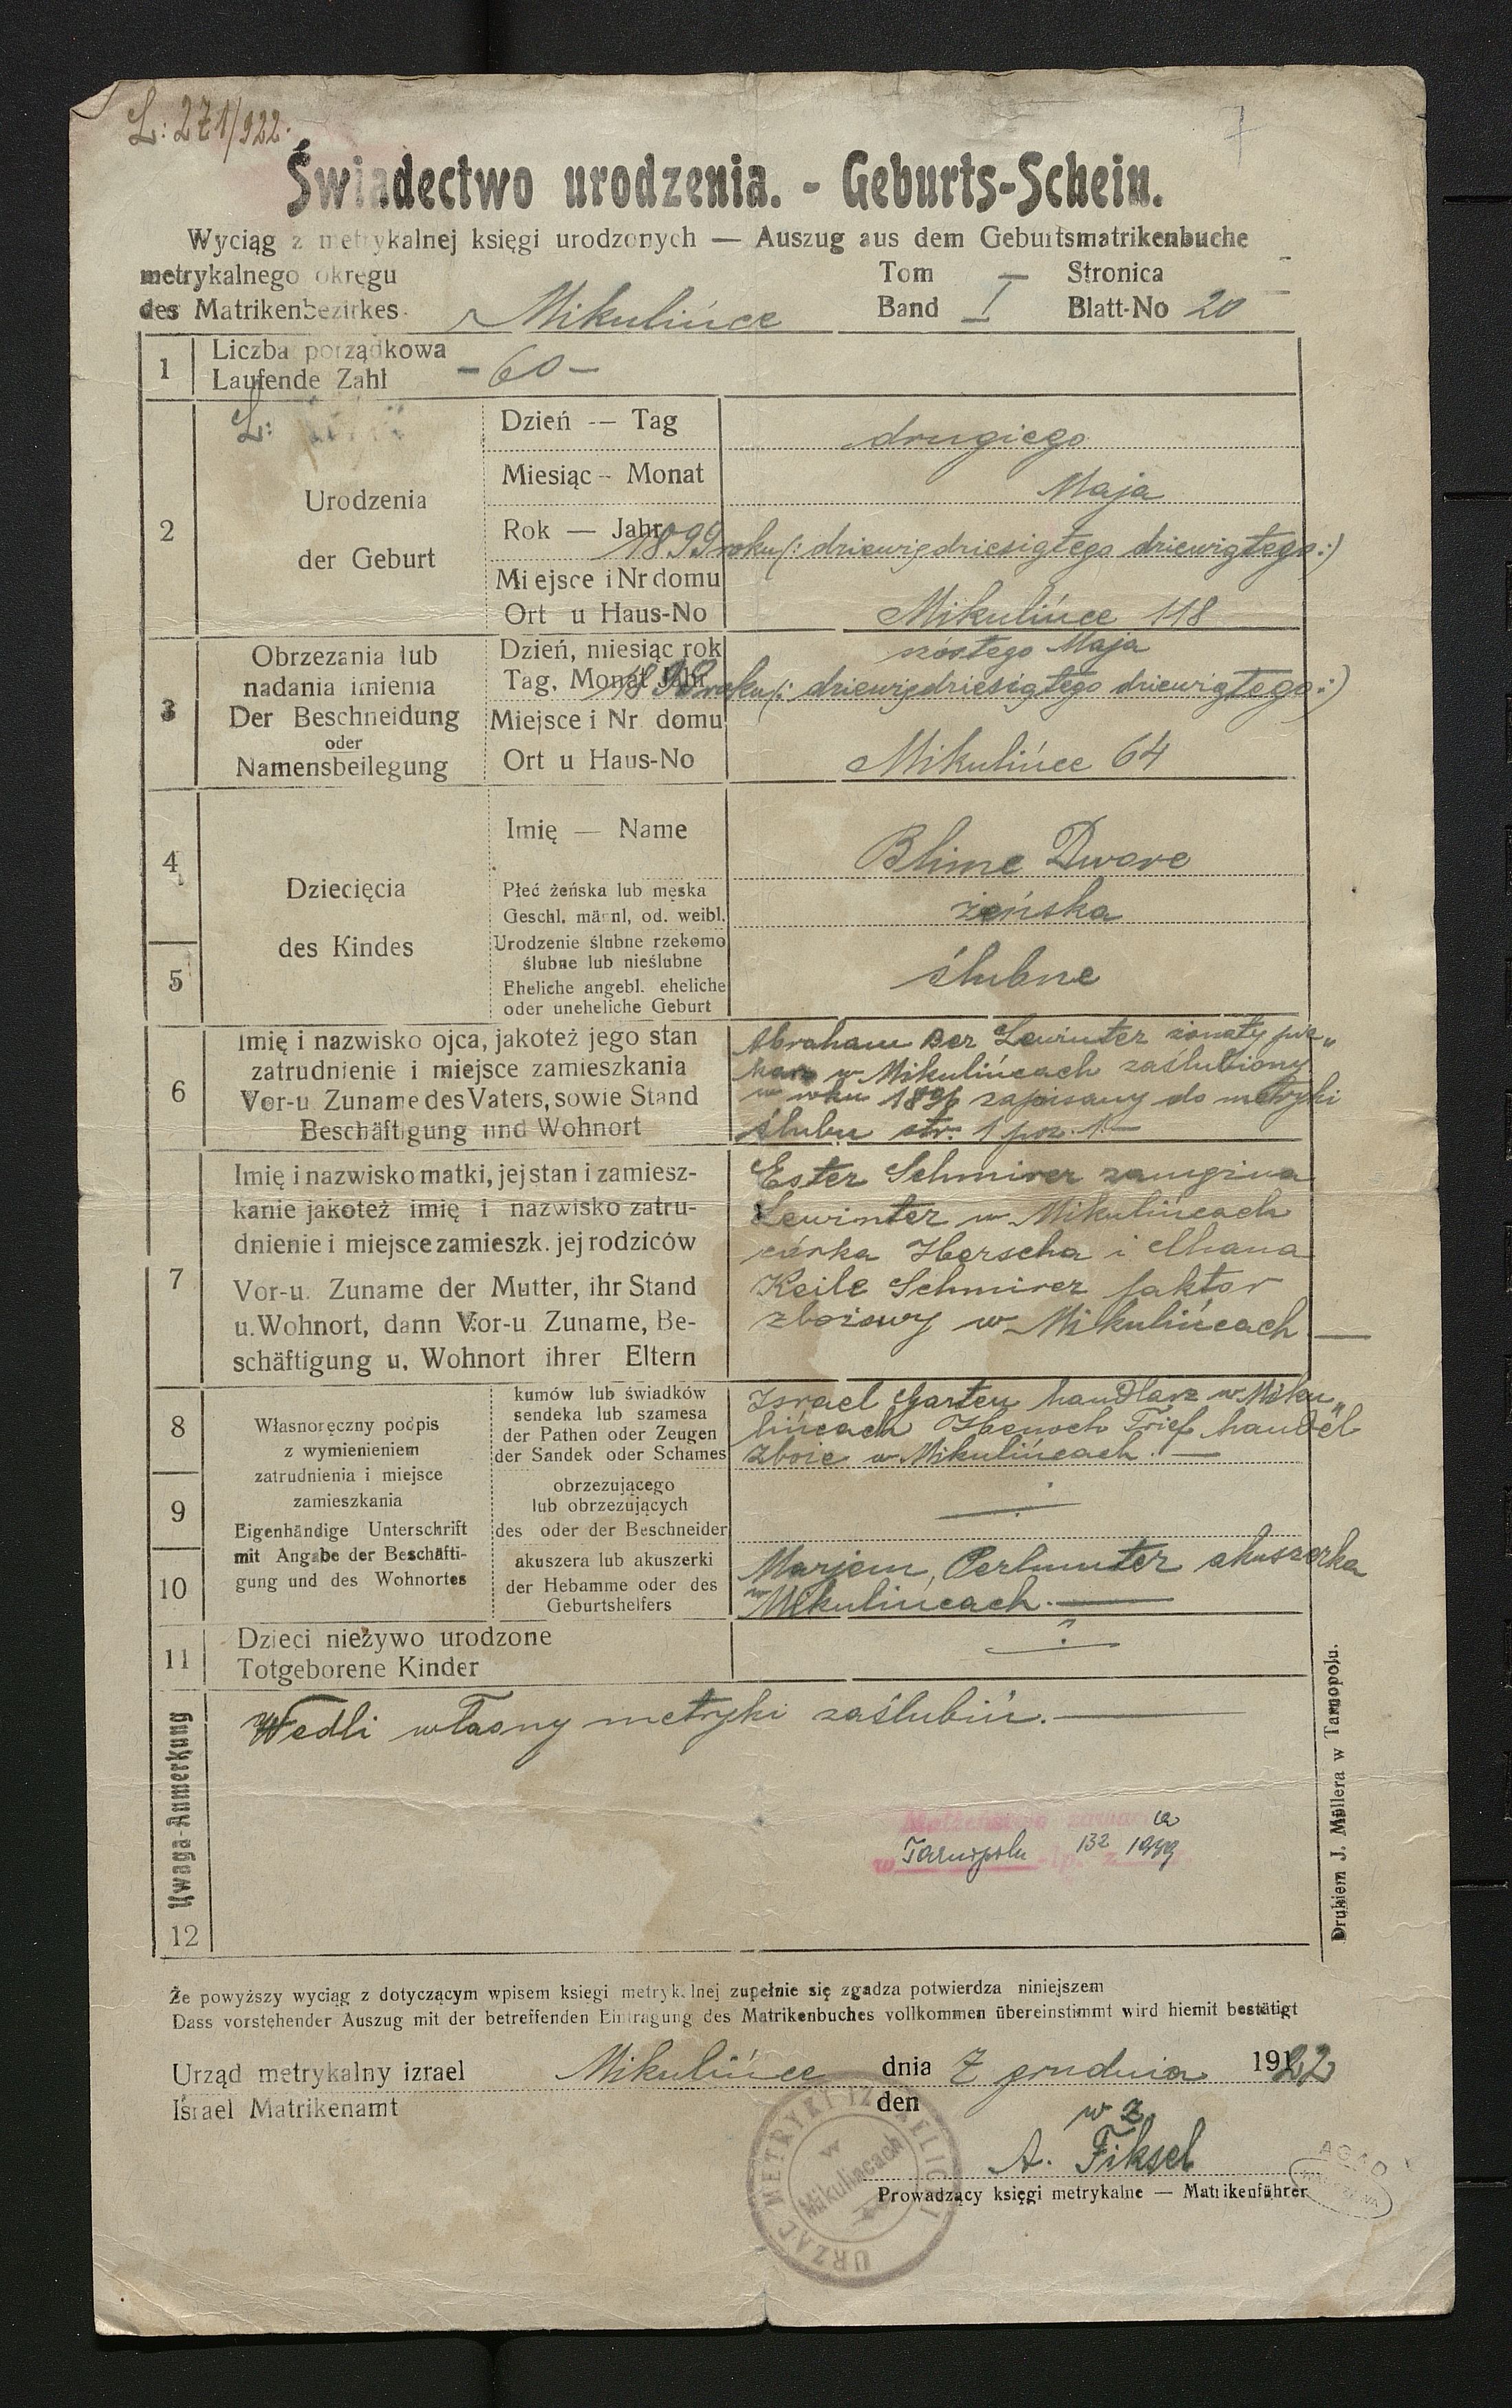 L: 271/922.
7
Świadectwo urodzenia. - Geburts-Schein.
Wyciąg z metrykalnej księgi urodzonych — Auszug aus dem Geburtsmatrikenbuche
metrykalnego okręgu
des Matrikenbezirkes
Mikulińce
Tom
Band
I
Stronica
Blatt-No
20
1
Liczba porządkowa
Laufende Zahl
- 60 -
2
L:
Urodzenia
der Geburt
Dzień -- Tag
drugiego
Miesiąc - Monat
Maja
Rok — Jahr
1899 roku (: dziewiędziesiątego dziewiątego :)
Miejsce i Nr domu
Ort u Haus-No
Mikulińce 118
3
Obrzezania lub
nadania imienia
Der Beschneidung
oder
Namensbeilegung
Dzień, miesiąc rok
Tag, Monat Jahr
szóstego Maja
1899 roku (: dziewiędziesiątego dziewiątego :)
Miejsce i Nr domu
Ort u Haus-No
Mikulińce 64
4
5
Dziecięcia
des Kindes
Imię — Name
Blime Dwore
Płeć żeńska lub męska
Geschl. männl, od. weibl.
żeńska
Urodzenie ślubne rzekomo
ślubne lub nieślubne
Eheliche angebl. eheliche
oder uneheliche Geburt
ślubne
6
Imię i nazwisko ojca, jakoteż jego stan
zatrudnienie i miejsce zamieszkania
Vor-u Zuname des Vaters, sowie Stand
Beschäftigung und Wohnort
Abraham Ber Lewinter żonaty
w Mikulińcach zaślubiony
w roku 1896 zapisany do metryki
ślubu str. 1 poz. 1. —
7
Imię i nazwisko matki, jej stan i zamiesz-
kanie jakoteż imię i nazwisko zatru-
dnienie i miejsce zamieszk. jej rodziców
Vor-u. Zuname der Mutter, ihr Stand
u. Wohnort, dann Vor-u Zuname, Be-
schäftigung u. Wohnort ihrer Eltern
Ester Schmirer
Lewinter w Mikulińcach
córka Herscha i Chana
Keile Schmirer faktor
zbożowy w Mikulińcach —
8
9
10
Własnoręczny podpis
z wymienieniem
zatrudnienia i miejsce
zamieszkania
Eigenhändige Unterschrift
mit Angabe der Beschäfti-
gung und des Wohnortes
kumów lub świadków
sendeka lub szamesa
der Pathen oder Zeugen
der Sandek oder Schames
Israel Garten handlarz w Miku„
lińcach Henoch Trief handel
zboże w Mikulińcach. —
obrzezującego
lub obrzezujących
des oder der Beschneider
akuszera lub akuszerki
der Hebamme oder des
Geburtshelfers
Marjem Perlmuter akuszerka
w Mikulińcach. —
11
Dzieci nieżywo urodzone
Totgeborene Kinder
Uwaga-Anmerkung
12
Wedli własny metryki zaślubin. —
Tarnopolu 132
Drukiem J. Müllera w Tarnopolu.
Że powyższy wyciąg z dotyczącym wpisem księgi metrykalnej zupełnie się zgadza potwierdza niniejszem
Dass vorstehender Auszug mit der betreffenden Eintragung des Matrikenbuches vollkommen übereinstimmt wird hiemit bestätigt
Urząd metrykalny izrael
Israel Matrikenamt
Mikulińce
dnia
den
7 grudnia 1922
w z
A. Fiksel
Prowadzący księgi metrykalne — Matrikenführer
URZĄD METRYKI IZRAELICKI
w
Mikulińcach
AGAD